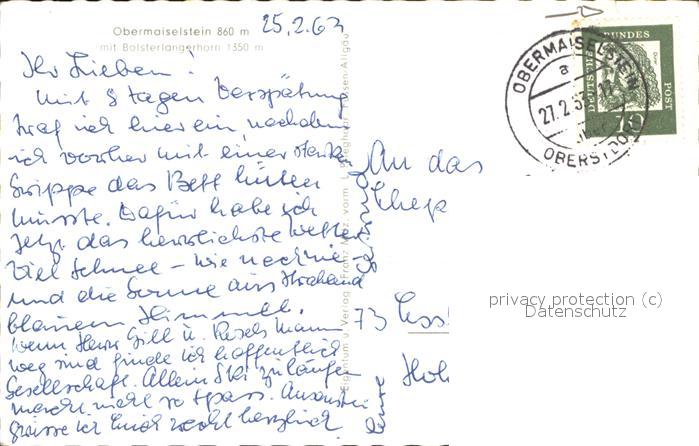 25.2.63
Obermaiselstein 860 m
mit Bolsterlangerhorn 1350 m
Ihr Lieben!
Mit 8 Tagen Verspätung
traf ich hier ein, nachdem
ich vorher mit einer starken
Grippe das Bett hüten
musste. Dafür habe ich
jetzt das herrlichste Wetter
viel Schnee – wie noch nie –
und die Sonne aus strahlend
blauem Himmel.
Wenn Herr Gill u. Resels Mann
weg sind finde ich hoffentlich
Gesellschaft. Allein Ski zu laufen
macht nicht so Spass. Ansonsten
Grüsse ich Euch recht herzlich
Eigentum u. Verlag Franz Merz, vorm.
Füssen-Allgäu
An das
Ehep
73 Ess
OBERMAISELSTEIN
a
27.2.63
OBERSTDORF
DEUTSCHE BUNDESPOST
10
privacy protection (c)
Datenschutz